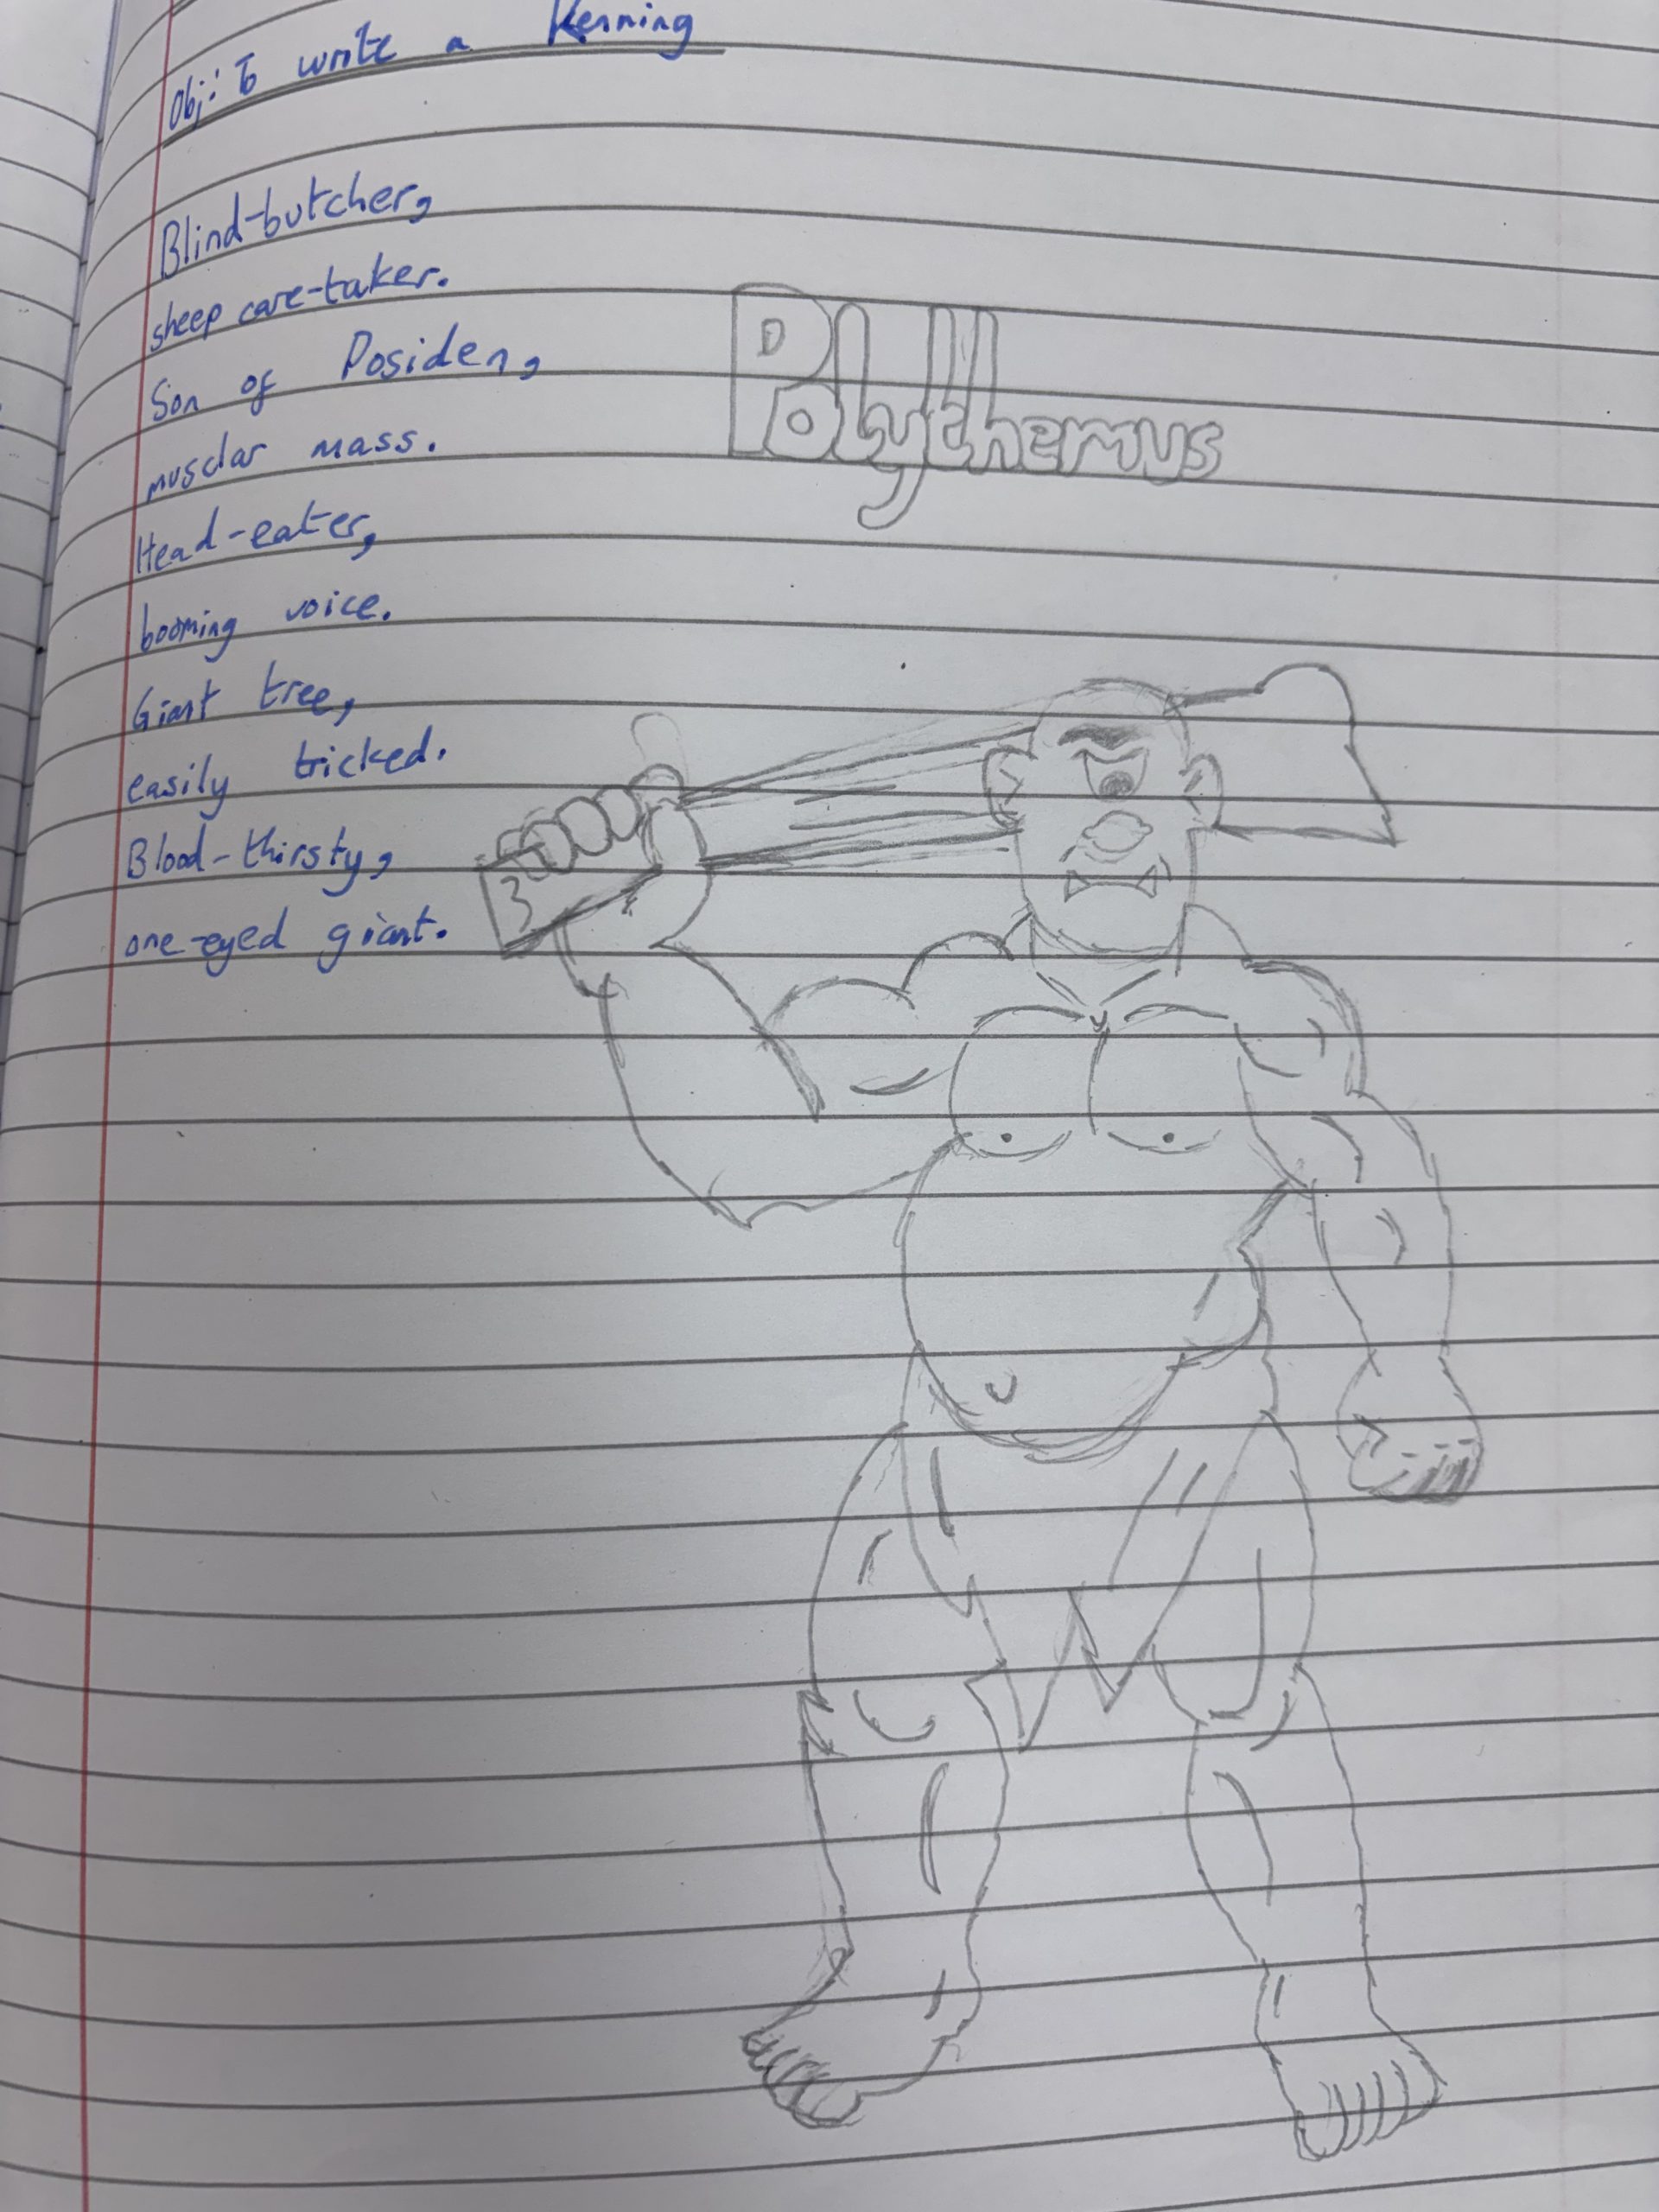 Obj: To write a Kenning
Blind-butcher,
sheep care-taker.
Son of Posiden,
musclar mass.
Polythemus
Head-eater,
booming voice.
Giant tree,
easily tricked.
Blood-thirsty,
one-eyed giant.